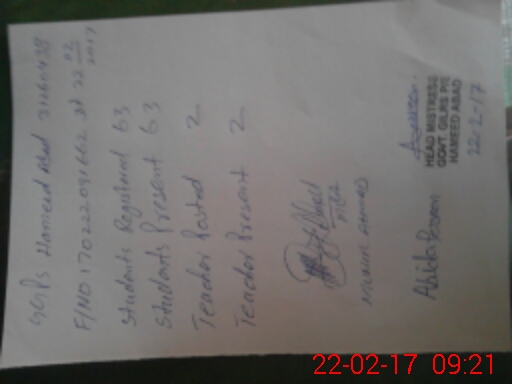 GGPS Hameed Abad 31260438
F/NO 170222091662 dt 22 02 2017
Students Registered 63
Students Present 63
Teacher Posted 2
Teacher Present 2
HEAD MISTRESS
GOVT. GILRS P/S
HAMEED ABAD
22-2-17
Abida Parveen
22-02-17 09:21